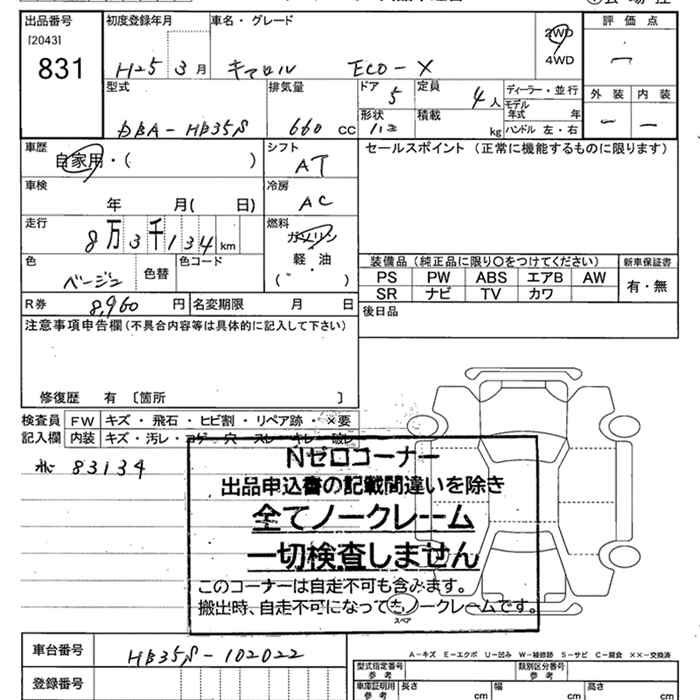 出品番号
[2043]
831
初度登録年月 車名・グレード
H25 3月 キャロル ECO-X
2WD
4WD
評価点
型式 排気量 ドア 定員
DBA-HB35S 660 CC 5 4人
形状 積載 kg
ディーラー・並行
モデル年式 年
ハンドル 左・右
外装 内装
車歴 自家用・( )
シフト AT
セールスポイント (正常に機能するものに限ります)
車検 年 月( 日)
冷房 AC
走行 8万3千134km
燃料 ガソリン
軽・油
( )
色 ベージュ 色替 色コード
装備品(純正品に限り○をつけてください) 新車保証書
PS PW ABS エアB AW 有・無
SR ナビ TV カワ
R券 8,960円 名変期限 月 日
後日品
注意事項申告欄(不具合内容等は具体的に記入して下さい)
修復歴 有〔箇所 〕
検査員 FW キズ・飛石・ヒビ割・リペア跡・×要
記入欄 内装 キズ・汚レ・コゲ・穴 スレ キレ 破レ
83134
Nゼロコーナー
出品申込書の記載間違いを除き
全てノークレーム
一切検査しません
このコーナーは自走不可も含みます。
搬出時、自走不可になってもノークレームです。
スペア
車台番号 HB35S-102022
A-キズ E-エクボ U-凹み W-補修跡 S-サビ C-腐食 XX-交換済
登録番号
型式指定番号 参考 類別区分番号 参考
車庫証明用 参考 長さ cm 幅 cm 高さ cm